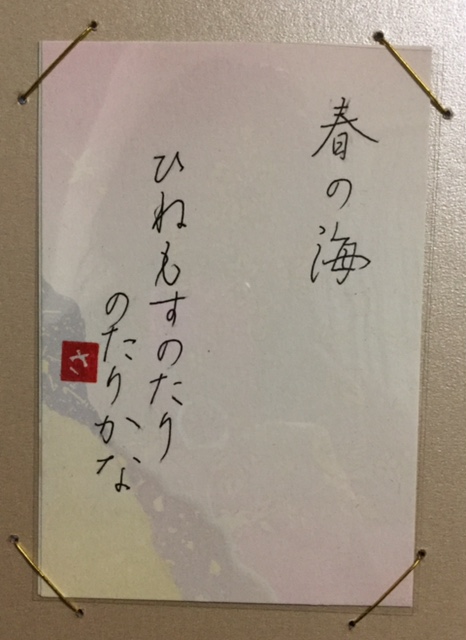 春の海
ひねもすのたり
のたりかな
さ